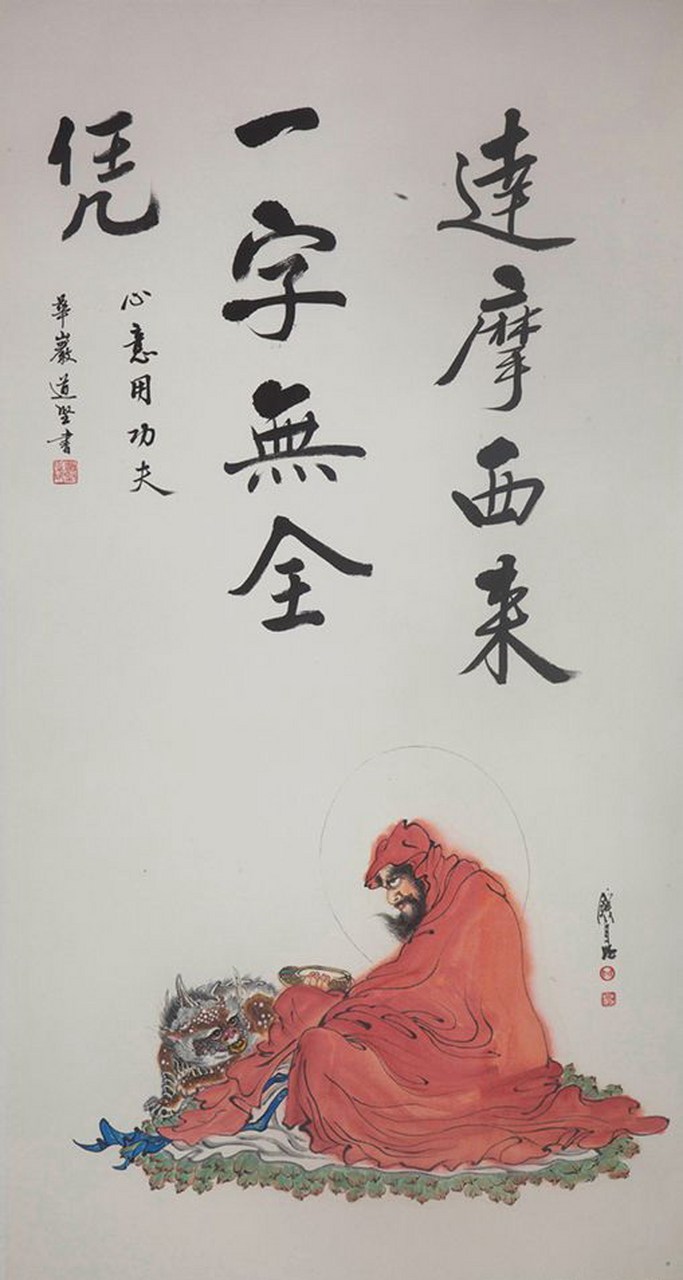 達摩西来
一字無全
凭
心意用功夫
華巖道坚書